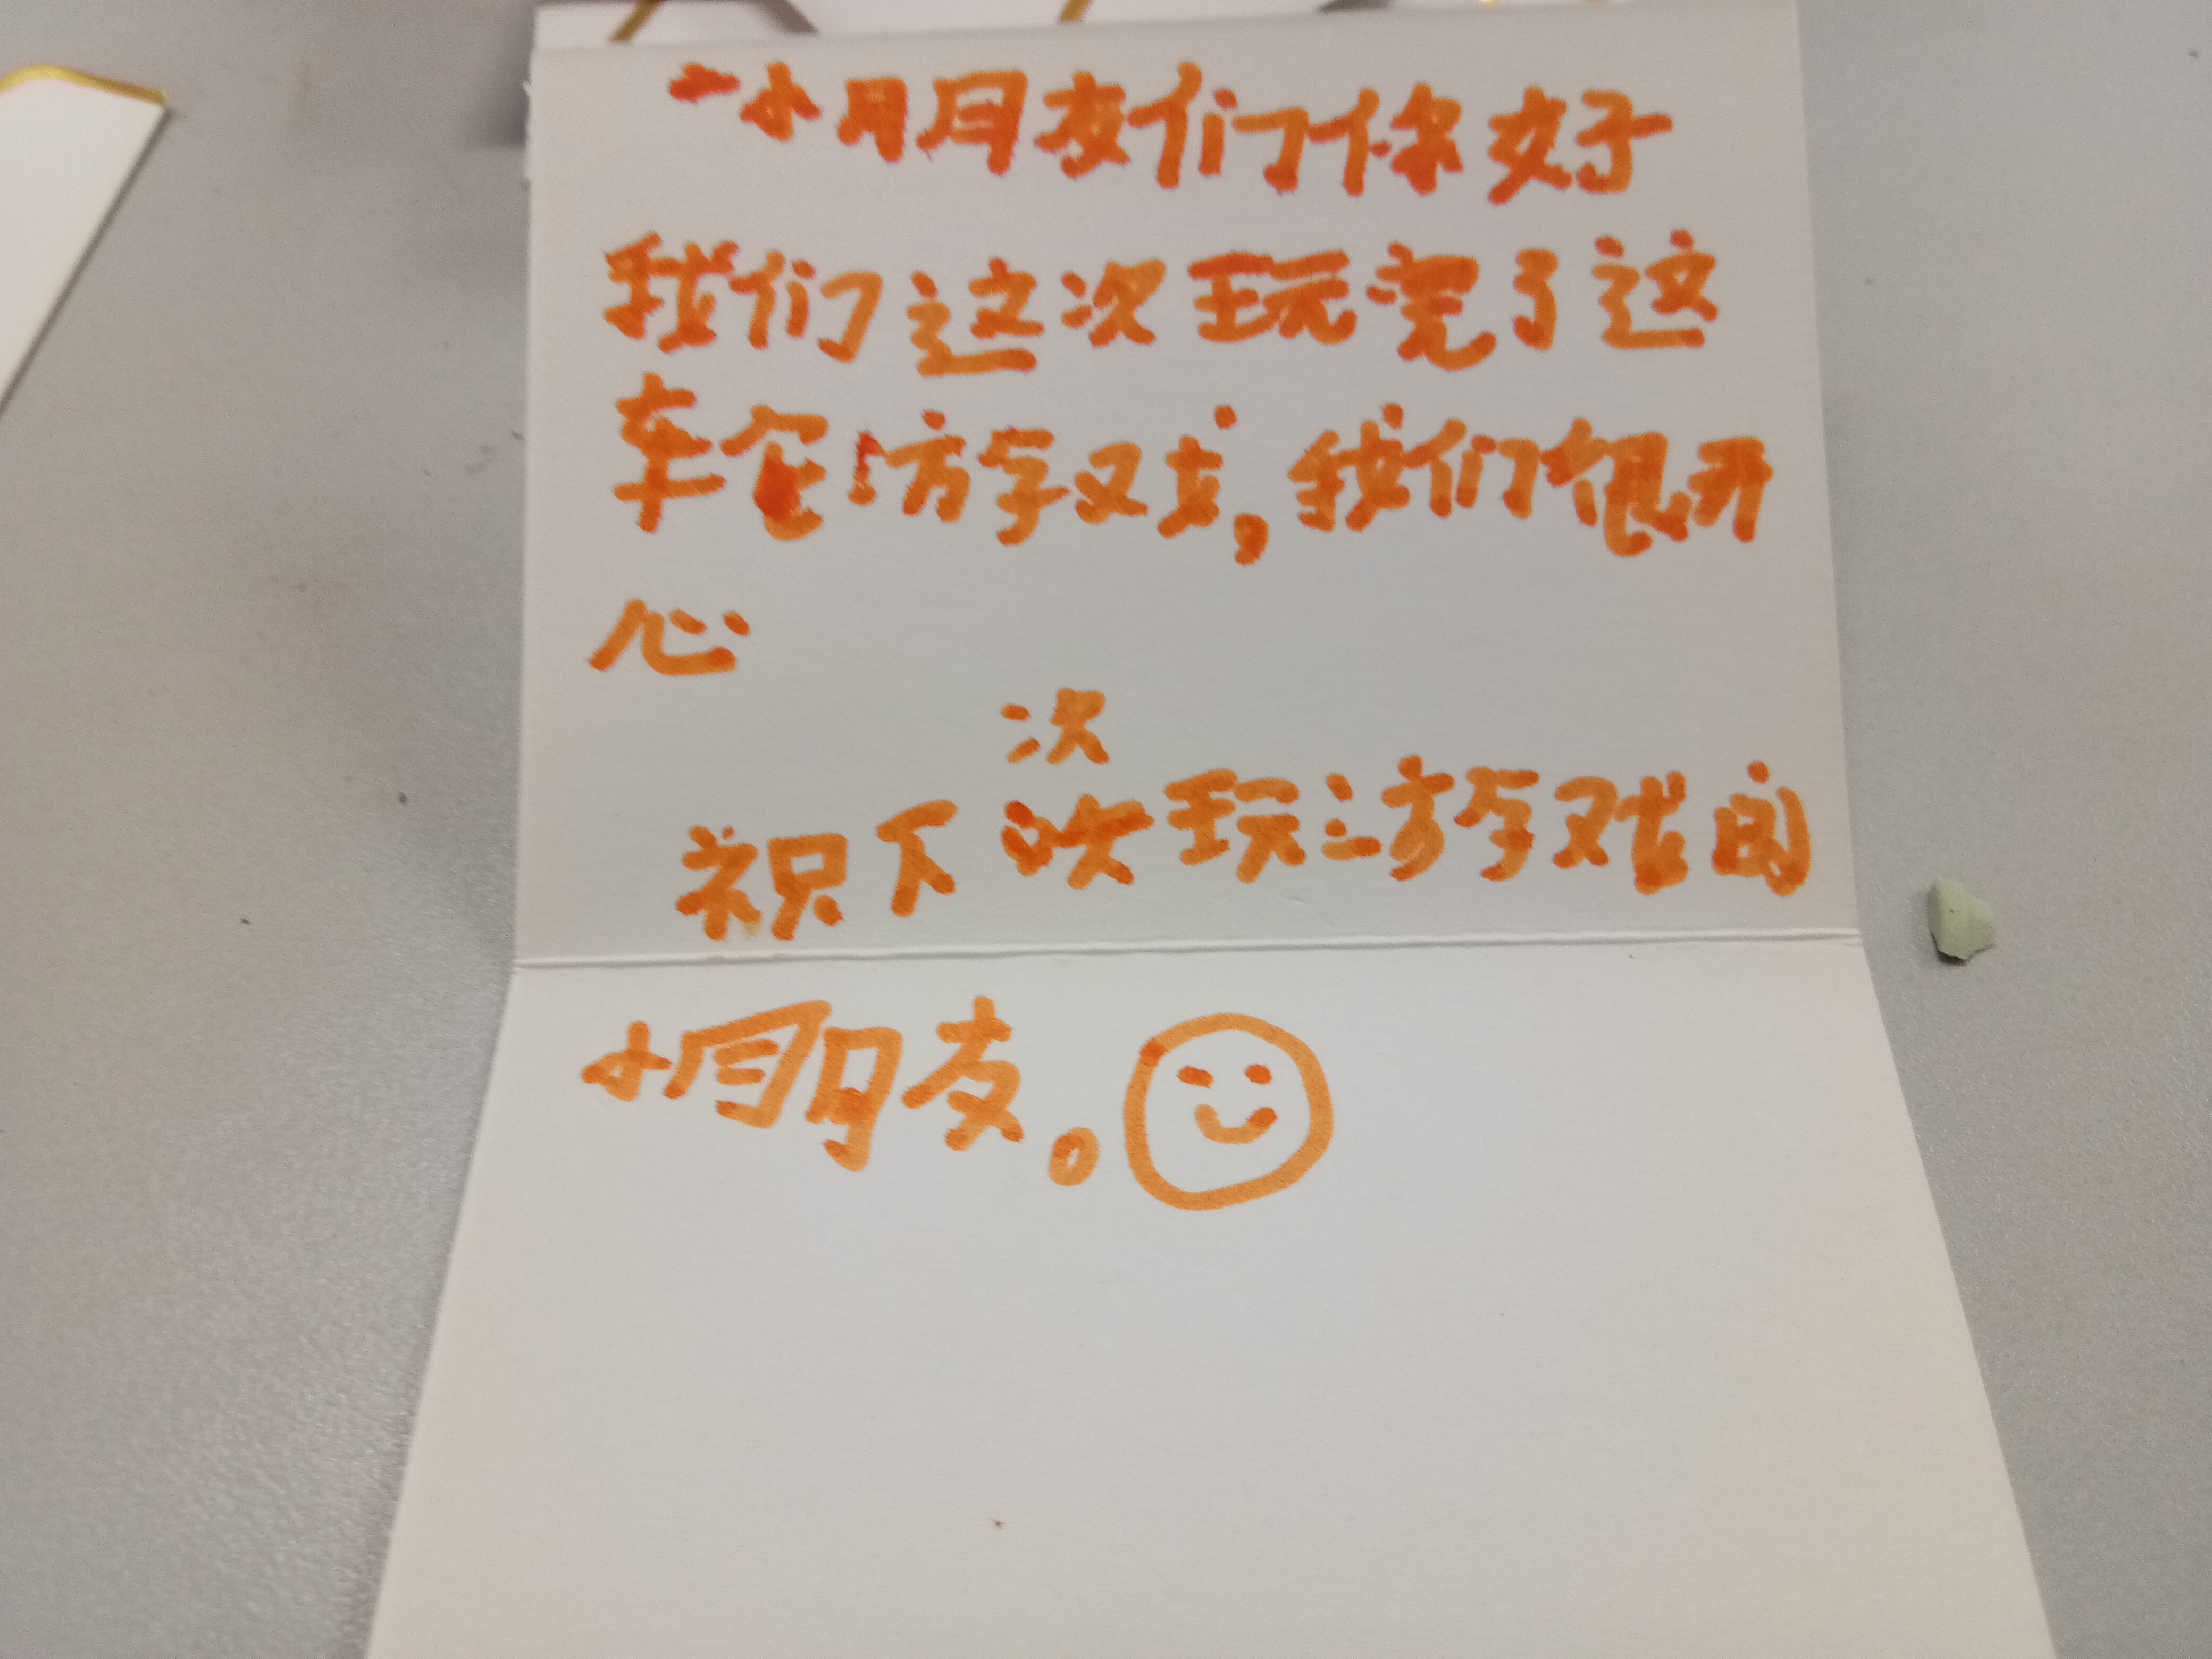 小朋友们你好
我们这次玩完了这
车仓游戏,我们很开
心
次
祝下次玩游戏的
小朋友。